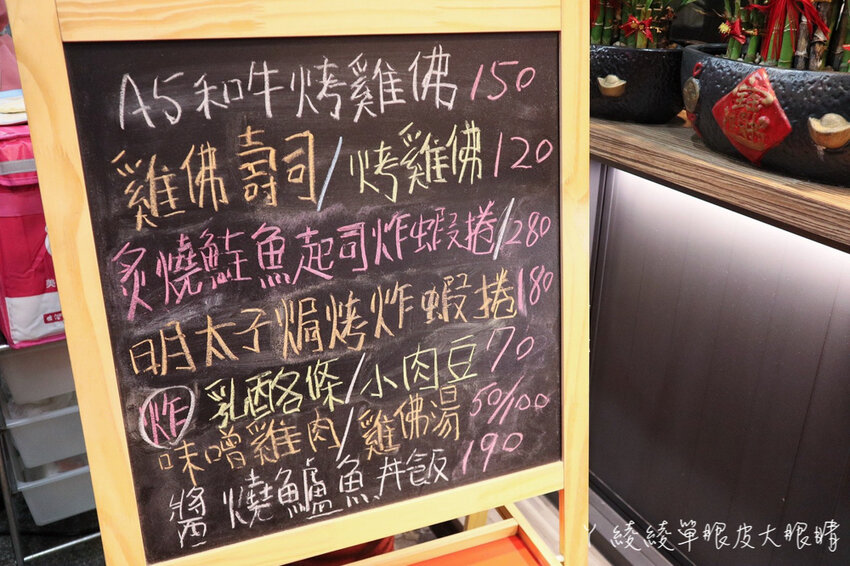 A5和牛烤雞佛 150
雞佛壽司/烤雞佛 120
炙燒鮭魚起司炸蝦捲/280
明太子焗烤炸蝦捲 180
炸 乳酪条條/小肉豆 70
味噌雞肉/雞佛湯 50/100
醬燒鱸魚丼飯 190
丫綾綾單眼皮大眼睛